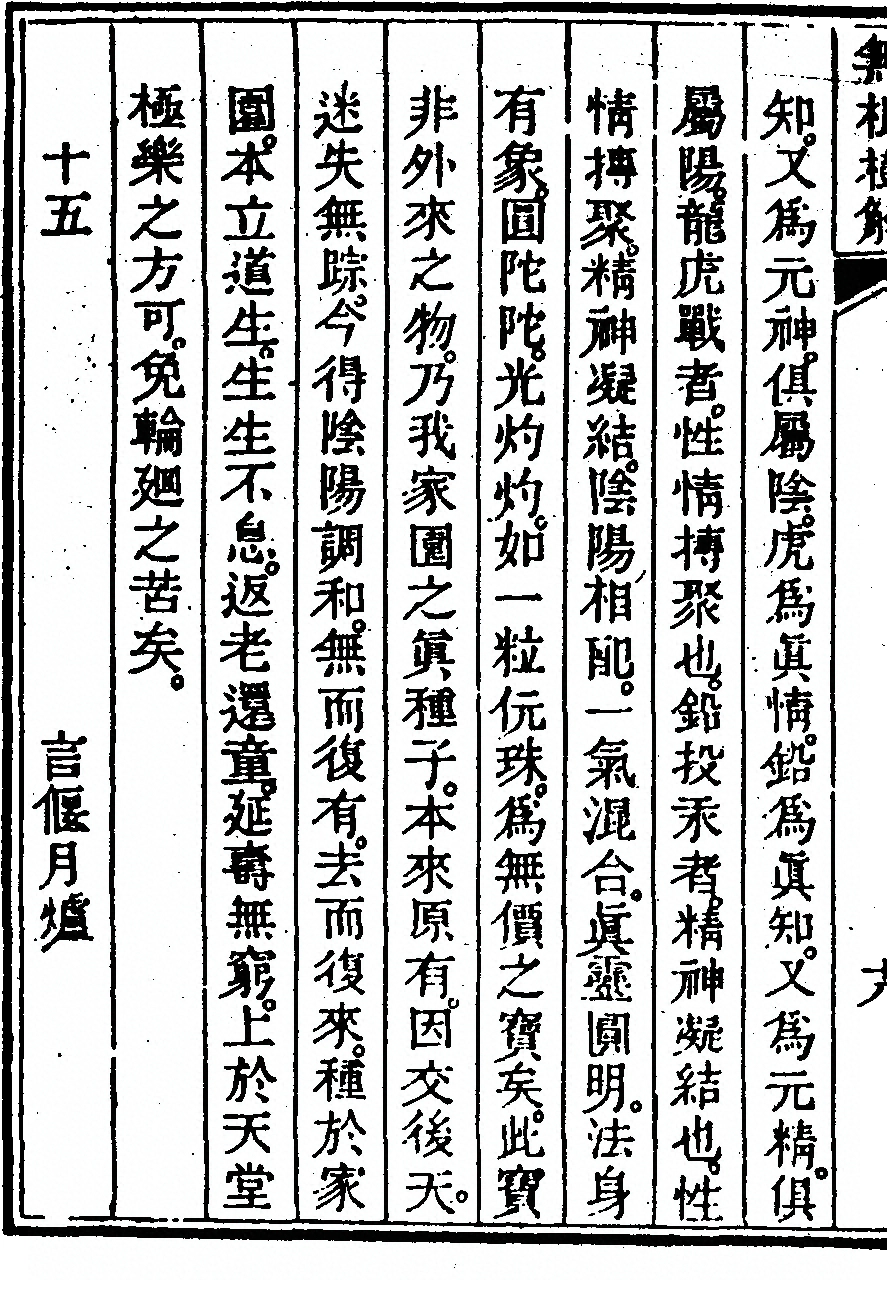 無根樹解
十八
知。又爲元神。俱屬陰。虎爲眞情。鉛爲眞知。又爲元精。俱
屬陽。龍虎戰者。性情摶聚也。鉛投汞者。精神凝結也。性
情摶聚。精神凝結。陰陽相配。一氣混合。眞靈圓明。法身
有象。圓陀陀。光灼灼。如一粒伭珠。爲無價之寶矣。此寶
非外來之物。乃我家園之眞種子。本來原有。因交後天。
迷失無踪。今得陰陽調和。無而復有。去而復來。種於家
園。本立道生。生生不息。返老還童。延壽無窮。上於天堂
極樂之方。可免輪廻之苦矣。
十五　言偃月爐